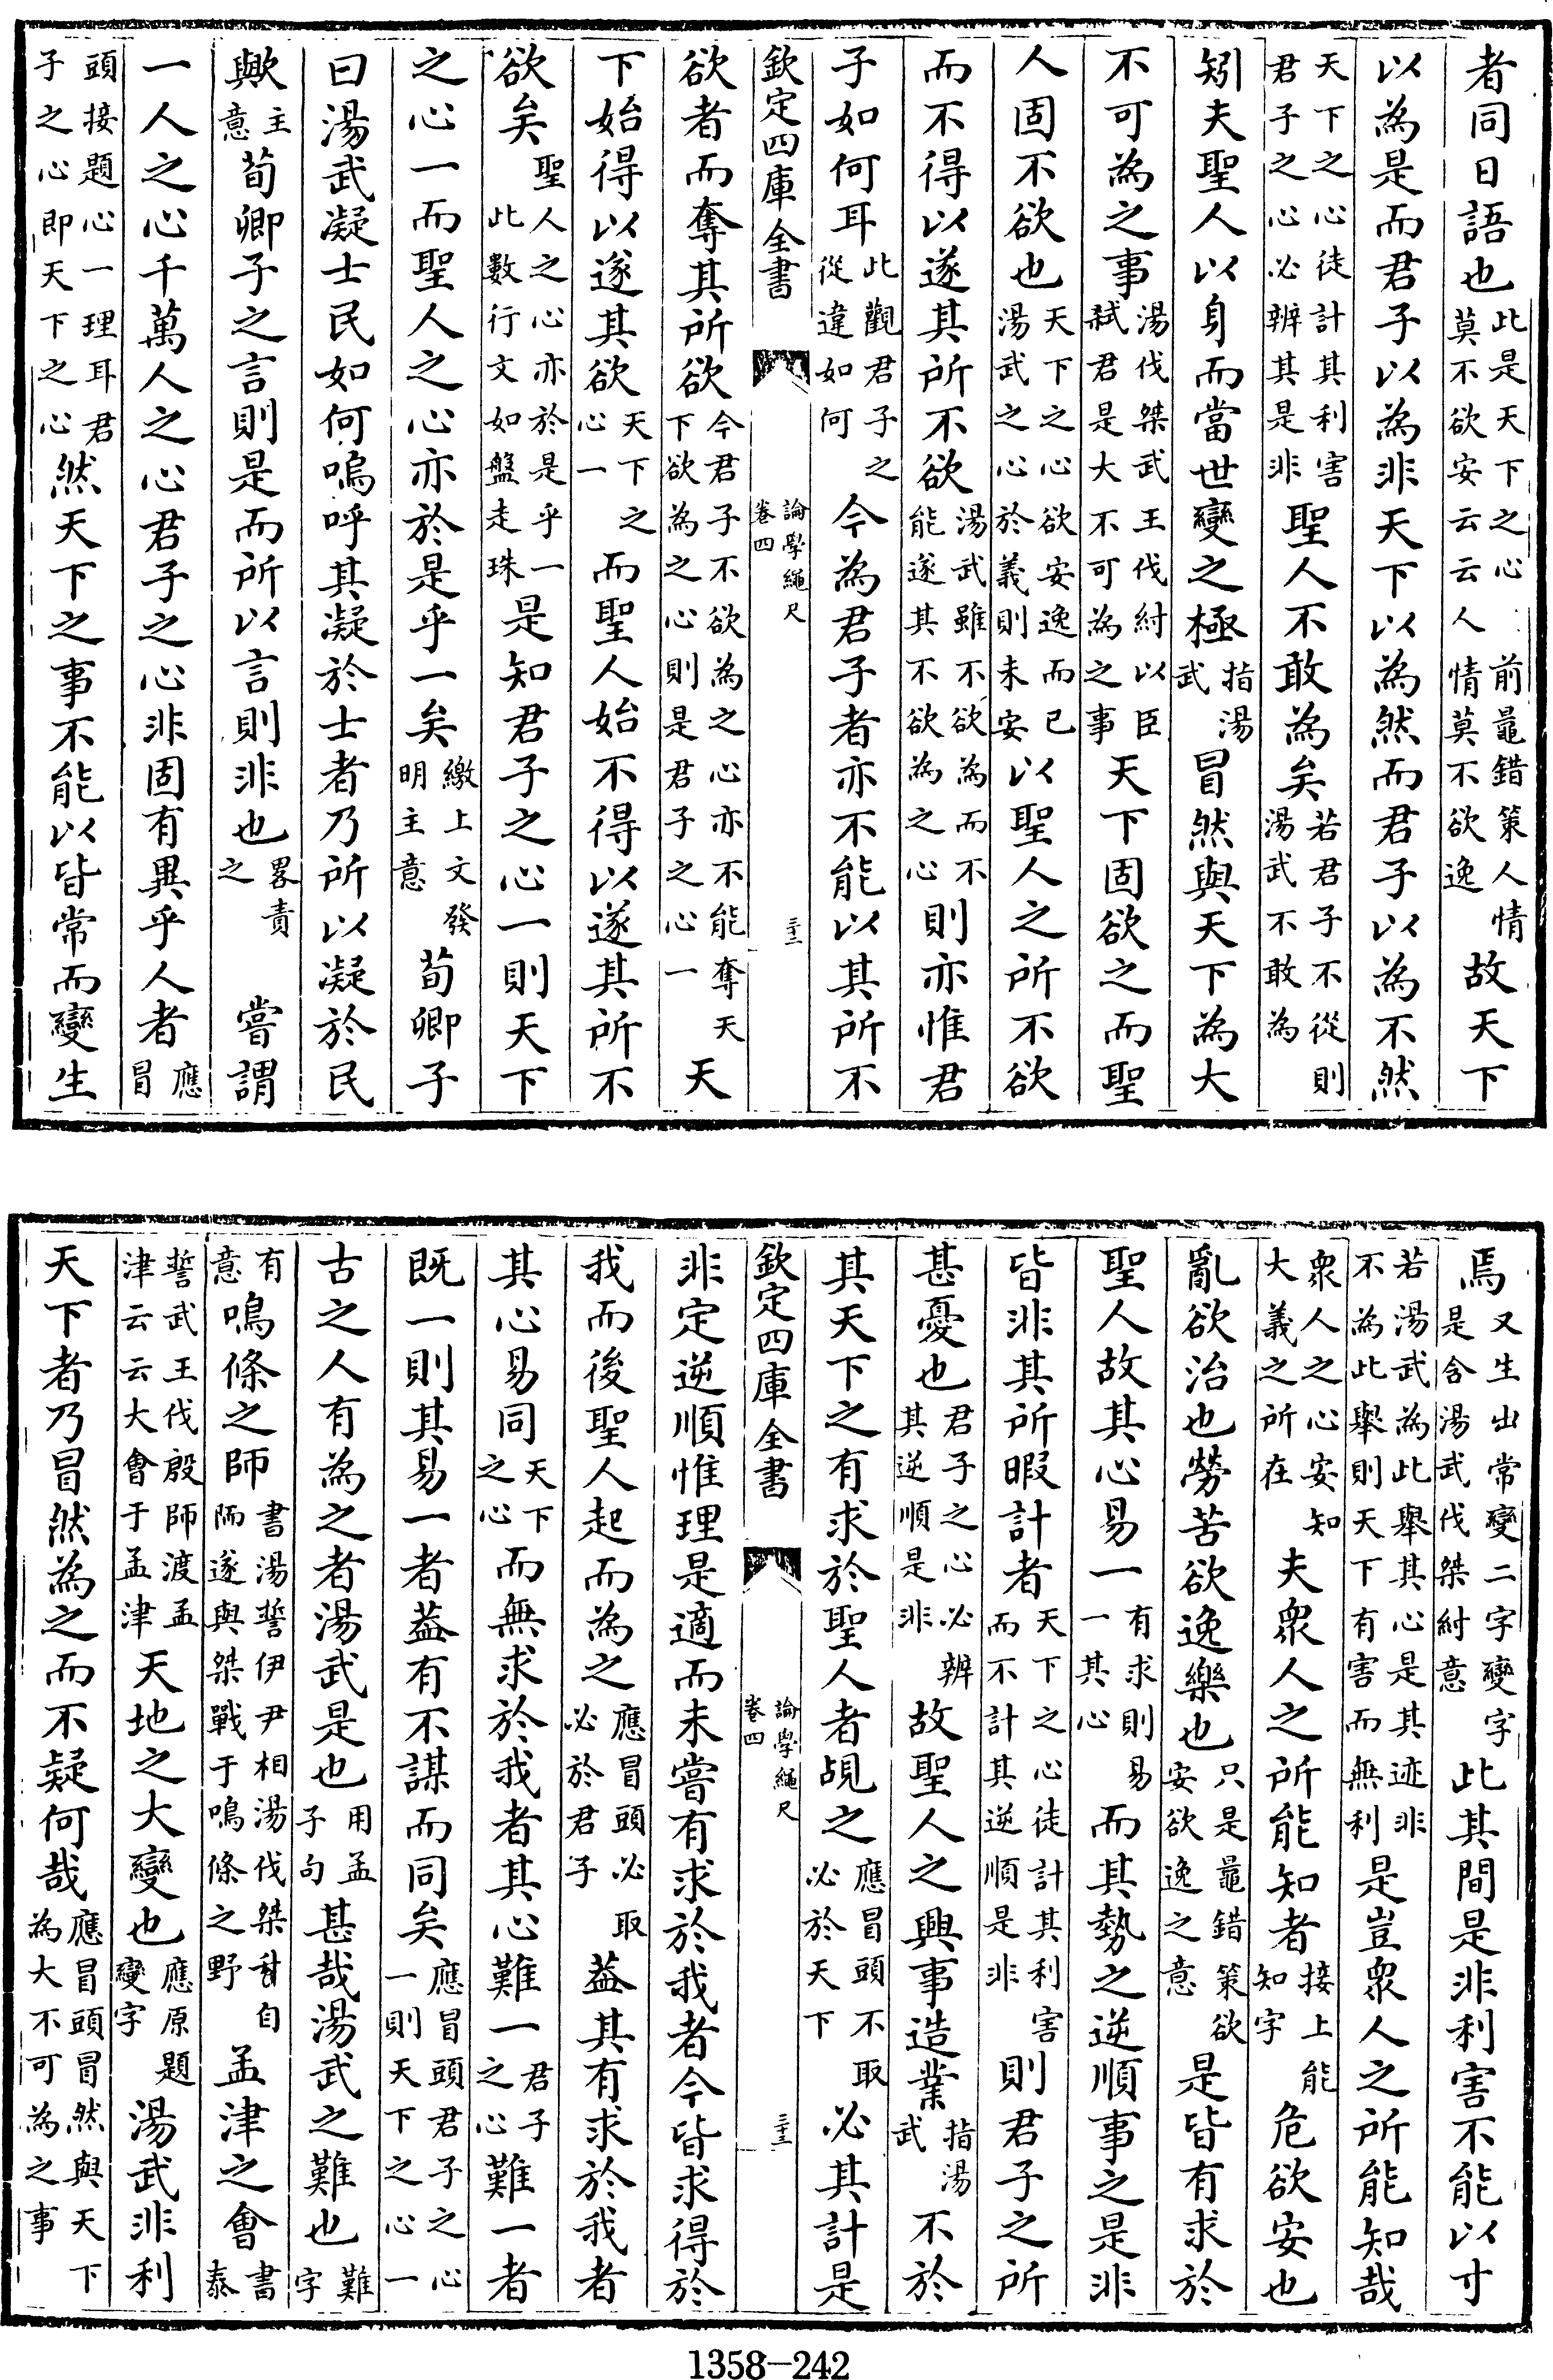 者同日語也此是天下之心前鼂錯策人情莫不欲安云云人情莫不欲逸故天下
以為是而君子以為非天下以為然而君子以為不然
天下之心徒計其利害君子之心必辨其是非聖人不敢為矣若君子不從則湯武不敢為
矧夫聖人以身而當世變之極指湯武冒然與天下為大
不可為之事湯伐桀武王伐紂以臣弑君是大不可為之事天下固欲之而聖
人固不欲也天下之心欲安逸而已湯武之心於義則未安以聖人之所不欲
而不得以遂其所不欲湯武雖不欲為而不能遂其不欲為之心則亦惟君
子如何耳此觀君子之從違如何今為君子者亦不能以其所不
欽定四庫全書
論學繩尺
卷四
三十二
欲者而奪其所欲今君子不欲為之心亦不能奪天下欲為之心則是君子之心一天
下始得以遂其欲天下之心一而聖人始不得以遂其所不
欲矣聖人之心亦於是乎一此數行文如盤走珠是知君子之心一則天下
之心一而聖人之心亦於是乎一矣繳上文發明主意荀卿子
曰湯武凝士民如何嗚呼其凝於士者乃所以凝於民
歟主意荀卿子之言則是而所以言則非也畧責之嘗謂
一人之心千萬人之心君子之心非固有異乎人者應冒
頭接題心一理耳君子之心即天下之心然天下之事不能以皆常而變生
焉又生出常變二字變字是含湯武伐桀紂意此其間是非利害不能以寸
若湯武為此舉其心是其迹非不為此舉則天下有害而無利是豈衆人之所能知哉
衆人之心安知大義之所在夫衆人之所能知者接上能知字危欲安也
亂欲治也勞苦欲逸樂也只是鼂錯策欲安欲逸之意是皆有求於
聖人故其心易一有求則易一其心而其勢之逆順事之是非
皆非其所暇計者天下之心徒計其利害而不計其逆順是非則君子之所
甚憂也君子之心必辨其逆順是非故聖人之興事造業指湯武不於
其天下之有求於聖人者覘之應冒頭不取必於天下必其計是
欽定四庫全書
論學繩尺
卷四
三十二
非定逆順惟理是適而未嘗有求於我者今皆求得於
我而後聖人起而為之應冒頭必取必於君子葢其有求於我者
其心易同天下之心而無求於我者其心難一君子之心難一者
既一則其易一者葢有不謀而同矣應冒頭君子之心一則天下之心一
古之人有為之者湯武是也用孟子句甚哉湯武之難也難字
有意鳴條之師書湯誓伊尹相湯伐桀升自陑遂與桀戰于鳴條之野孟津之會書泰
誓武王伐殷師渡孟津云云大會于孟津天地之大變也應原題變字湯武非利
天下者乃冒然為之而不疑何哉應冒頭冒然與天下為大不可為之事
1358-242